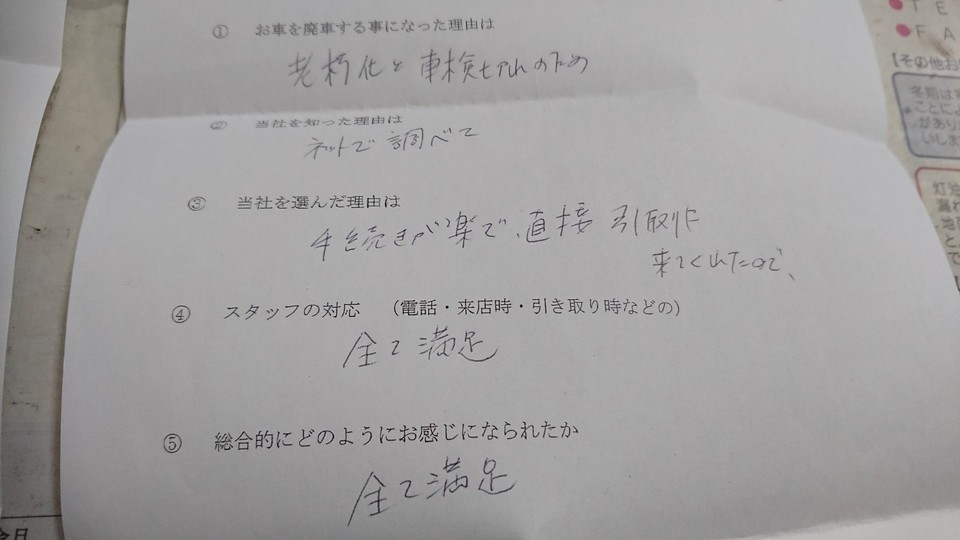 ① お車を廃車する事になった理由は
老朽化と車検切れのため
② 当社を知った理由は
ネットで調べて
③ 当社を選んだ理由は
手続きが楽で、直接 引取りに
来てくれたので、
④ スタッフの対応 （電話・来店時・引き取り時などの）
全て満足
⑤ 総合的にどのようにお感じになられたか
全て満足
T E
F A
【その他お
冬期は
ことによ
があり
いしま
灯油
漏れ